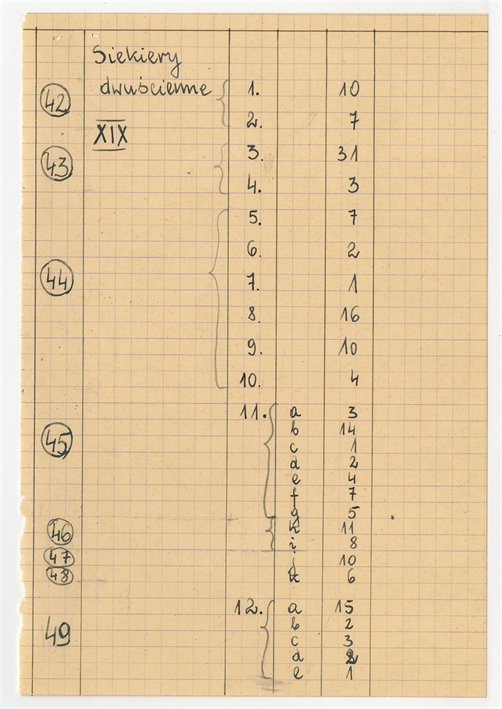 Siekiery
42 dwuścienne 1. 10
2. 7
XIX
43 3. 31
4. 3
5. 7
6. 2
44 7. 1
8. 16
9. 10
10. 4
11. a 3
b 14
45 c 1
d 2
e 4
f 7
g 5
46 h 11
i 8
47 j 10
48 k 6
12. a 15
49 b 2
c 3
d 2
e 1